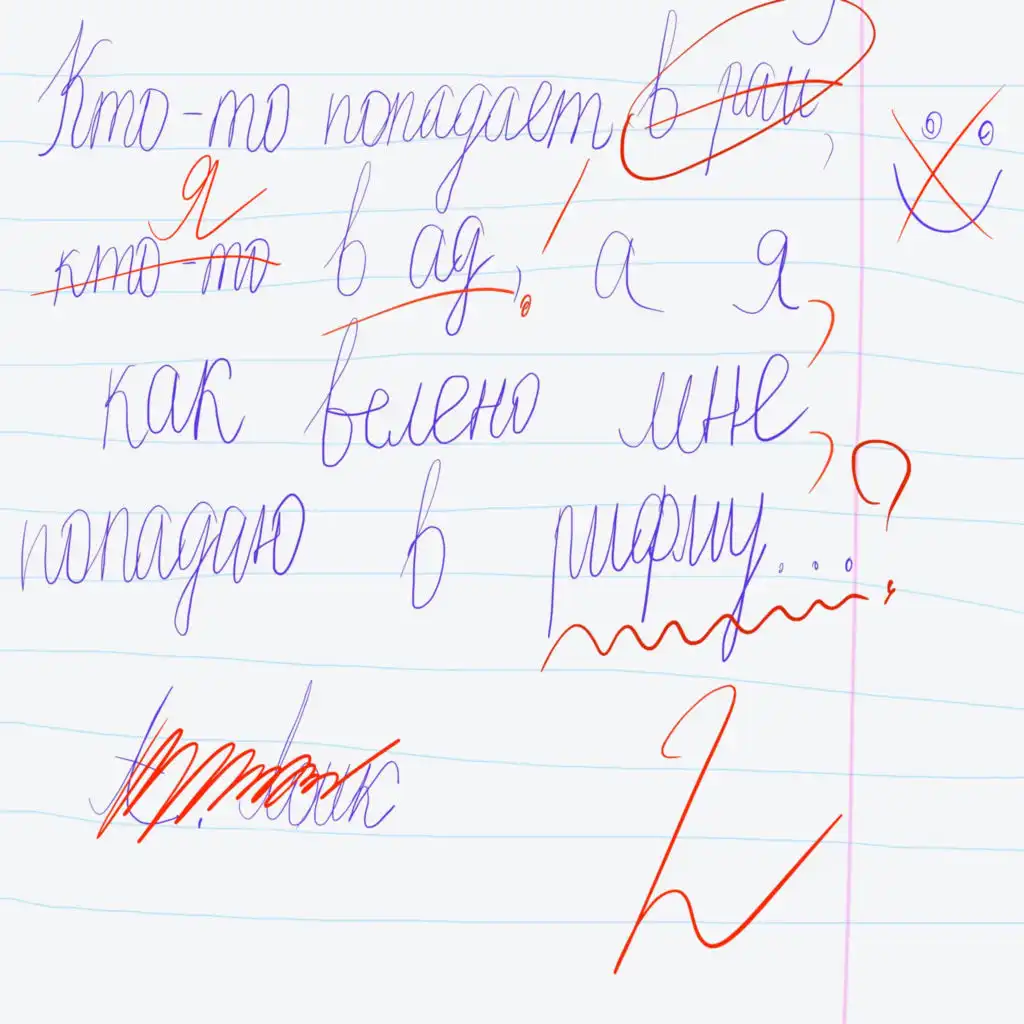 Кто-то попадает в рай,
Я
кто-то в ад, а я,
как велено мне,
попадаю в рифму...?
2